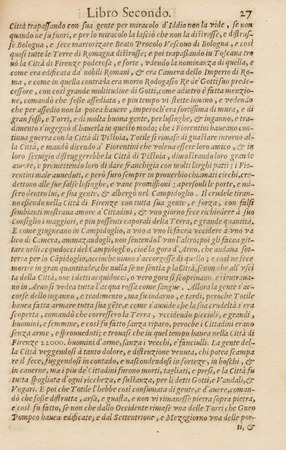 Libro Secondo. 27
Città trapassando con sua gente per miracolo d'Iddio non la vide, se non
quando ne fu fuori, e per lo miracolo la lasciò che non la distrusse, e distrus-
se Bologna, e fece martorizare Beato Procolo Vescovo di Bologna, e così
quasi tutte le Terre di Romagna distrusse; e poi trapassando in Toscana tro-
vò la Città di Firenze poderosa, e forte, udendo la nominanza di quella, e
come era edificata da nobili Romani, & era Camera dello Imperio di Ro-
ma, e come in quella contrada era morto Rodagasio Re de' Gottisuo prede-
cessore, con così grande moltitudine di Gotti, come adietro è fatta menzio-
ne, comandò che fosse assediata, e più tempo vi stette invano, e vedendo
che per assedio non la potea havere, imperciò era fortissima di mura, e di
gran fossi, e Torri, e di molta buona gente, per lusinghe, & inganno, e tra-
dimento s'ingegnò d'haverla in questo modo; che i Fiorentini haveano con-
tinua guerra con la Città di Pistoia, Totile si rimase di guastare intorno al-
la Città, e mandò dicendo a' Fiorentini che volea essere loro amico, & in
loro servigio distruggerebbe la Città di Pistoia, dimostrando loro grande
amore, e promettendo loro di dare franchigia con molti larghi patti: i Fio-
rentini male avveduti, e però furo sempre in proverbio chiamati ciechi, cre-
dettono alle sue false lusinghe, e vane promissioni; apersonli le porte, e mi-
serlo dentro lui, e sua gente, & albergò nel Campidoglio. Il crudele tiran-
no essendo nella Città di Firenze con tutta sua gente, e forza, con falsi
sembianti mostrava amore a' Cittadini, & uno giorno fece richiedere à suo
Consiglio i maggiori, e più possenti caporali della Terra, e grande quantità.
E come giungevano in Campidoglio, a uno a uno li faceva uccidere à uno va-
lico di Camera, ammazzandogli, non sentendo l'uno l'altro, poi gli facea git-
tare nelli acquedocci del Campidoglio, cioè la gora d'Arno, che andava sot-
terra per lo Cãpidoglio, acciò che niuno s'accorgesse di questo; e così ne fece
morire in gran quantità, che nulla se ne sentia p la Città, se non che all'usci-
ta della Città,
no in Arno si vedea tutta l'acqua rossa come sangue. Allora la gente s'ac-
corse dello inganno, e tradimento, ma fu indarno, e tardi, perochè Totile
havea fatta armare tutta sua gente, e come s'avvide che la sua crudeltà era
scoperta, comandò che corressero la Terra, uccidendo piccioli, e grandi,
huomini, e femmine, e così fu fatto senza riparo, perochè i Cittadini erano
senza arme, e sproveduti; e trovasi che in quel tempo havea nella Città di
Firenze 22000. huomini d'arme, sanza i vecchi, e fanciulli. La gente del-
la Città veggendosi à tanto dolore, e distrutione venuta, chi potea scampa-
re il fece, fuggendosi in contado, e nascondendosi in fortezze, in boschi, &
in caverne, ma i più de' cittadini furono morti, tagliati, e presi, e la Città fu
tutta spogliata d'ogni ricchezza, e sustanza, per li detti Gotti, Vandali, &
Vngari. E poi che Totile l'hebbe così consumata di gente, e d'avere, coman-
dò che fosse distrutta, arsa, e guasta, e non vi rimanesse pietra sopra pietra,
e così fu fatto, se non che dallo Occidente rimase una delle Torri che Gneo
Pompeo havea edificate, e dal Settentrione, e Mezogiorno una delle por-
ti, &